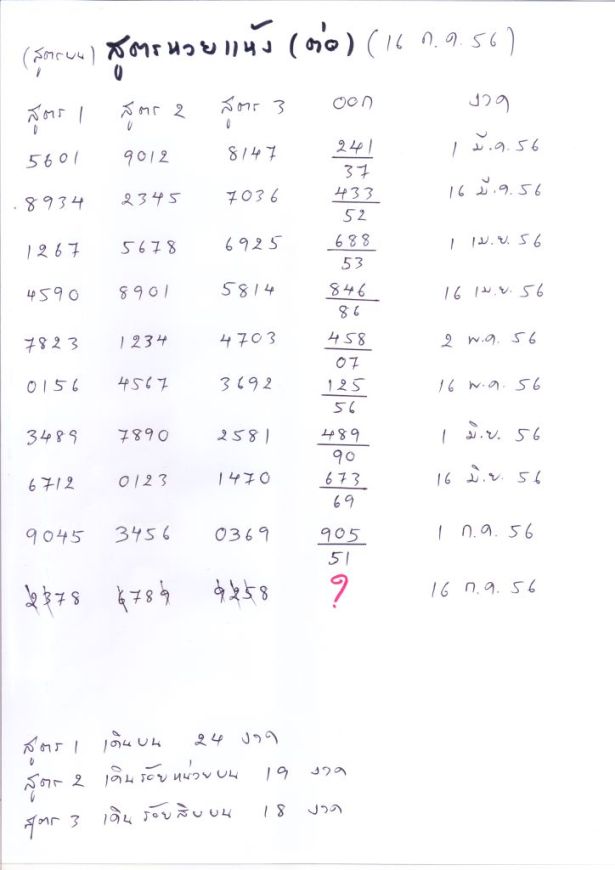 (สูตรบน) สูตรหวยแห้ง (ต่อ) (16 ก.ค. 56)
สูตร 1 สูตร 2 สูตร 3 ออก งวด
5601 9012 8147 241 1 มี.ค. 56
37
8934 2345 7036 433 16 มี.ค. 56
52
1267 5678 6925 688 1 เม.ย. 56
53
4590 8901 5814 846 16 เม.ย. 56
86
7823 1234 4703 458 2 พ.ค. 56
07
0156 4567 3692 125 16 พ.ค. 56
56
3489 7890 2581 489 1 มิ.ย. 56
90
6712 0123 1470 673 16 มิ.ย. 56
69
9045 3456 0369 905 1 ก.ค. 56
51
2378 6789 9258 ? 16 ก.ค. 56
สูตร 1 เดินบน 24 งวด
สูตร 2 เดินร้อยหน่วยบน 19 งวด
สูตร 3 เดินร้อยสิบบน 18 งวด